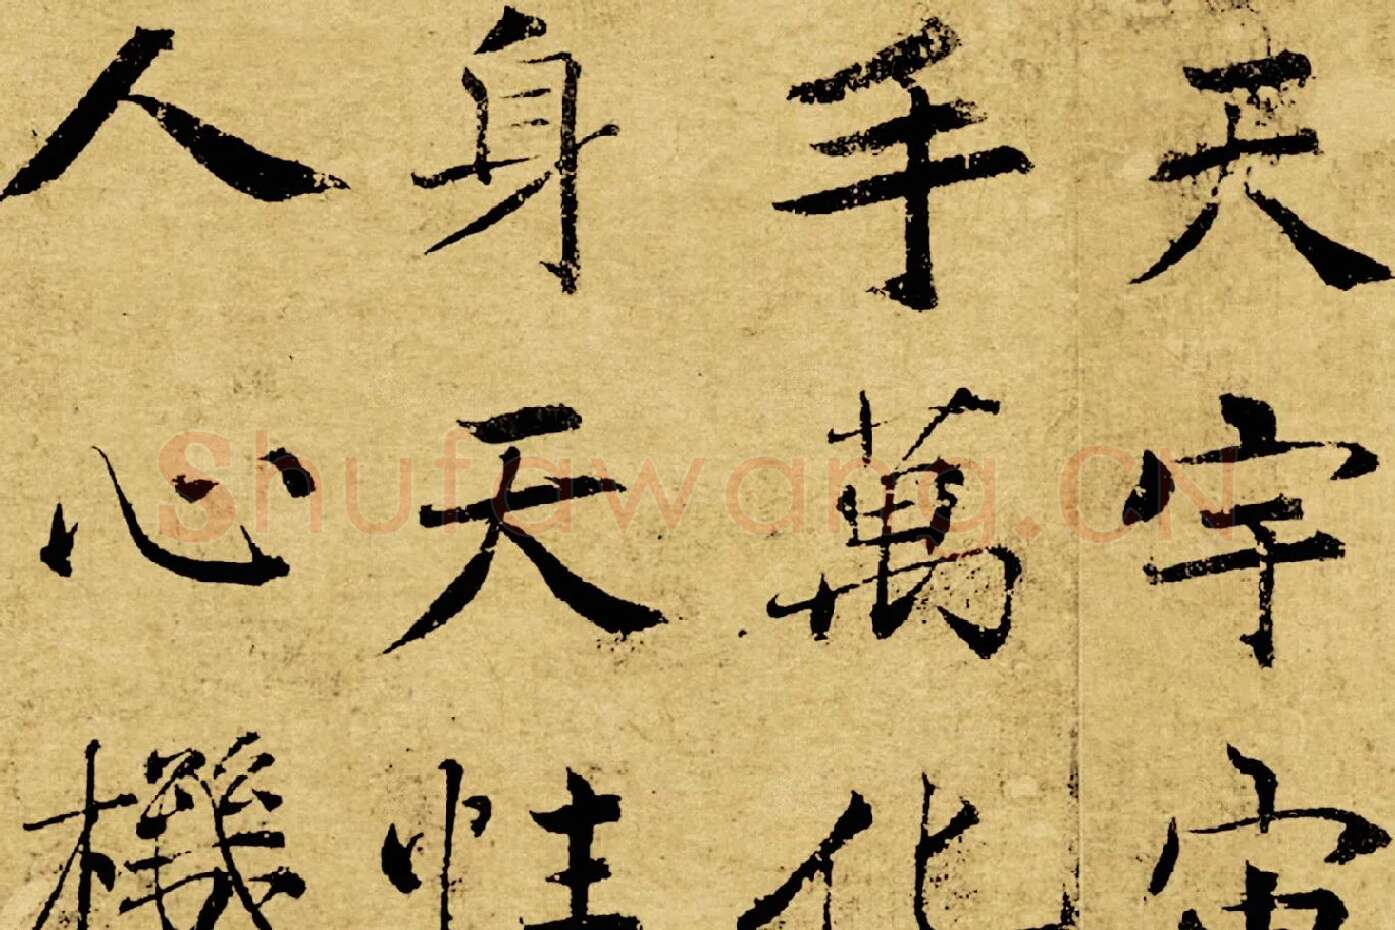 天宇宙
手萬化
身天性
人心機
Shufawang.CN